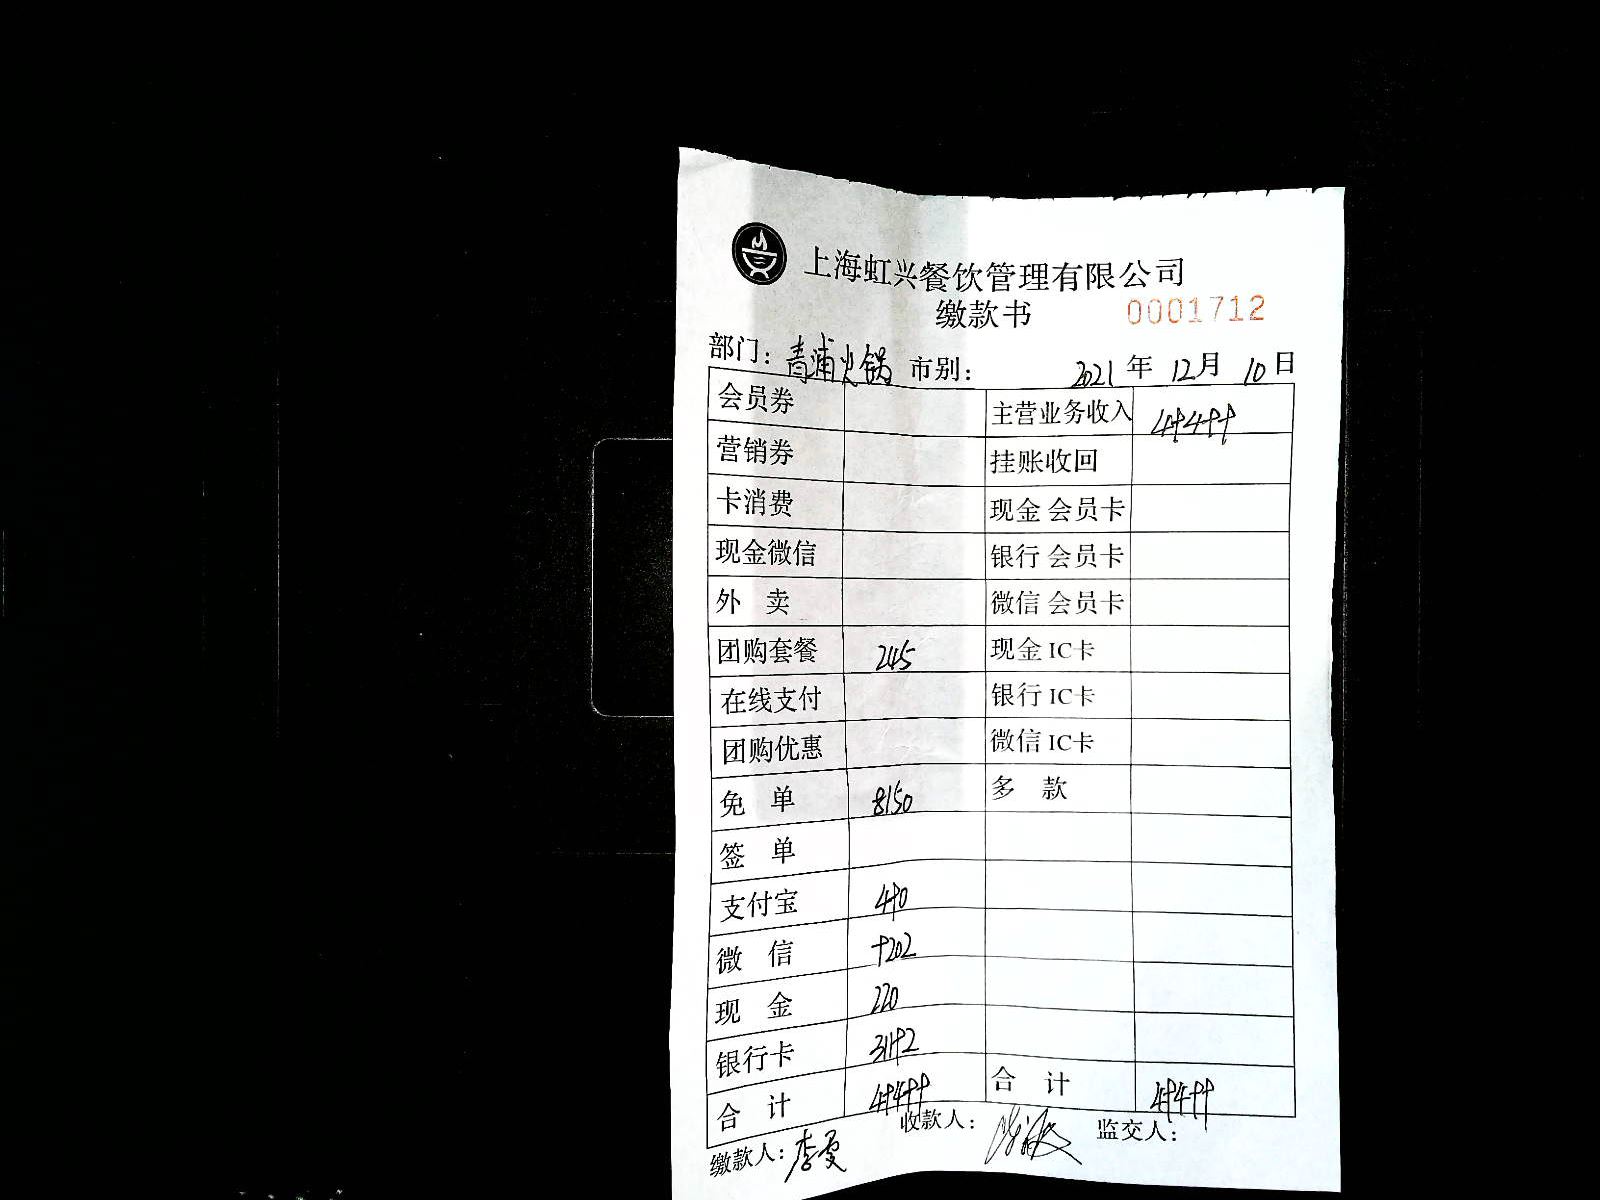 上海虹兴餐饮管理有限公司
缴款书 0001712
部门: 青浦火锅 市别: 2021 年 12 月 10 日
会员券 主营业务收入 49499
营销券 挂账收回
卡消费 现金 会员卡
现金微信 银行 会员卡
外 卖 微信 会员卡
团购套餐 245 现金 IC卡
在线支付 银行 IC卡
团购优惠 微信 IC卡
免 单 8150 多 款
签 单
支付宝 490
微 信 9202
现 金 220
银行卡 31192
合 计 49499 合 计 49499
缴款人: 收款人: 监交人: